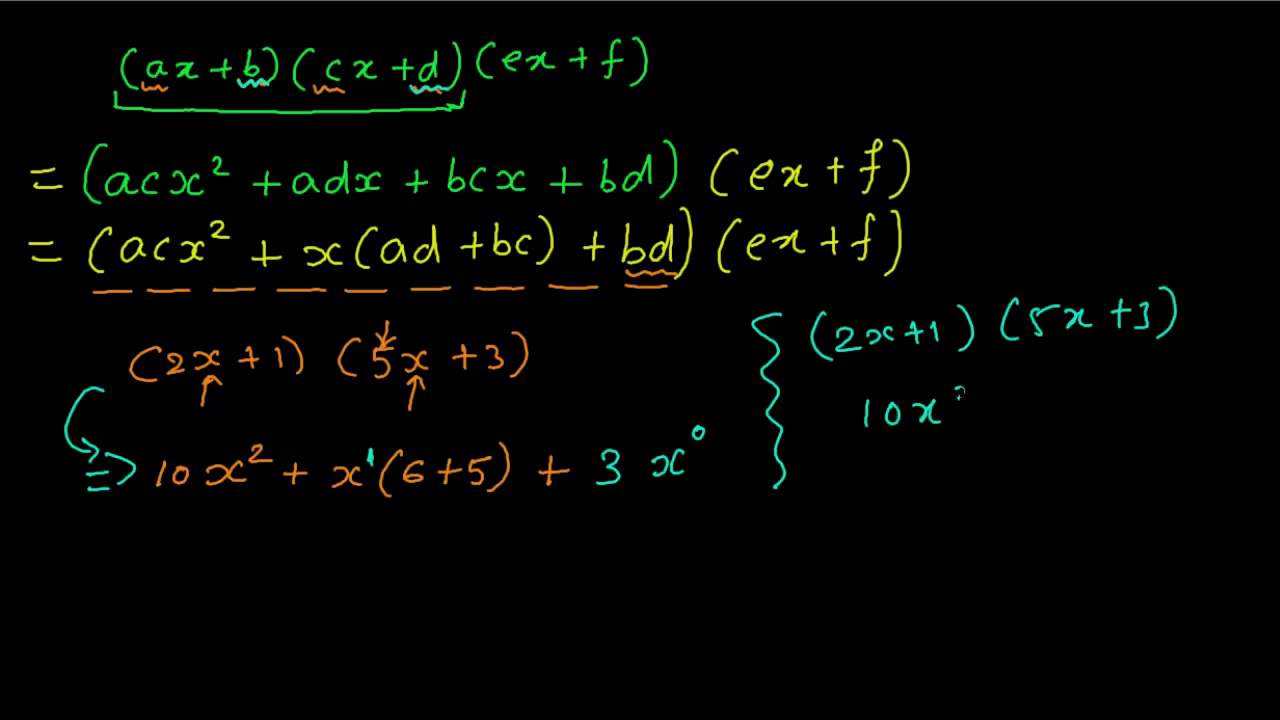 (ax+b)(cx+d)(ex+f)
= (acx² + adx + bcx + bd) (ex+f)
= (acx² + x(ad+bc) + bd) (ex+f)
(2x+1) (5x+3)
⇒ 10x² + x¹(6+5) + 3x⁰
(2x+1) (5x+3)
10x²